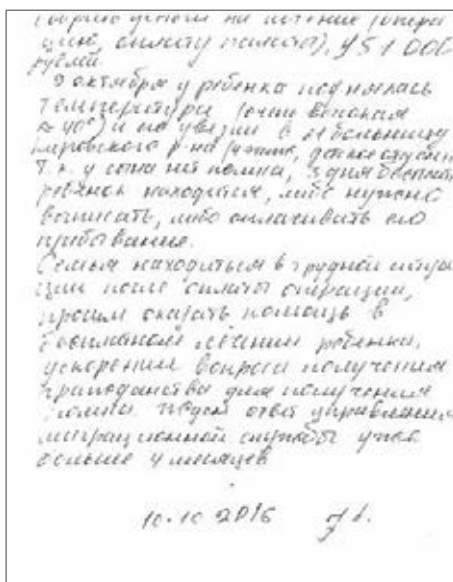 деньги на лечение (опера
цию, оплату палаты), 51 000
рублей.
9 октября у ребенка поднялась
температура (очень высокая
≈ 40°) и его увезли в больницу
Кировского р-на
Т.к. у сына нет полиса, 3 дня бесплатно
ребенок находится, либо нужно
выписать, либо оплачивать его
прибывание.
Семья находиться в трудной ситуа
ции после оплаты операции,
просим оказать помощь в
лечении ребенка,
ускорении вопроса получения
гражданства для получения
полиса. ответ управления
миграционной службы уже
больше 4 месяцев
10.10 2016